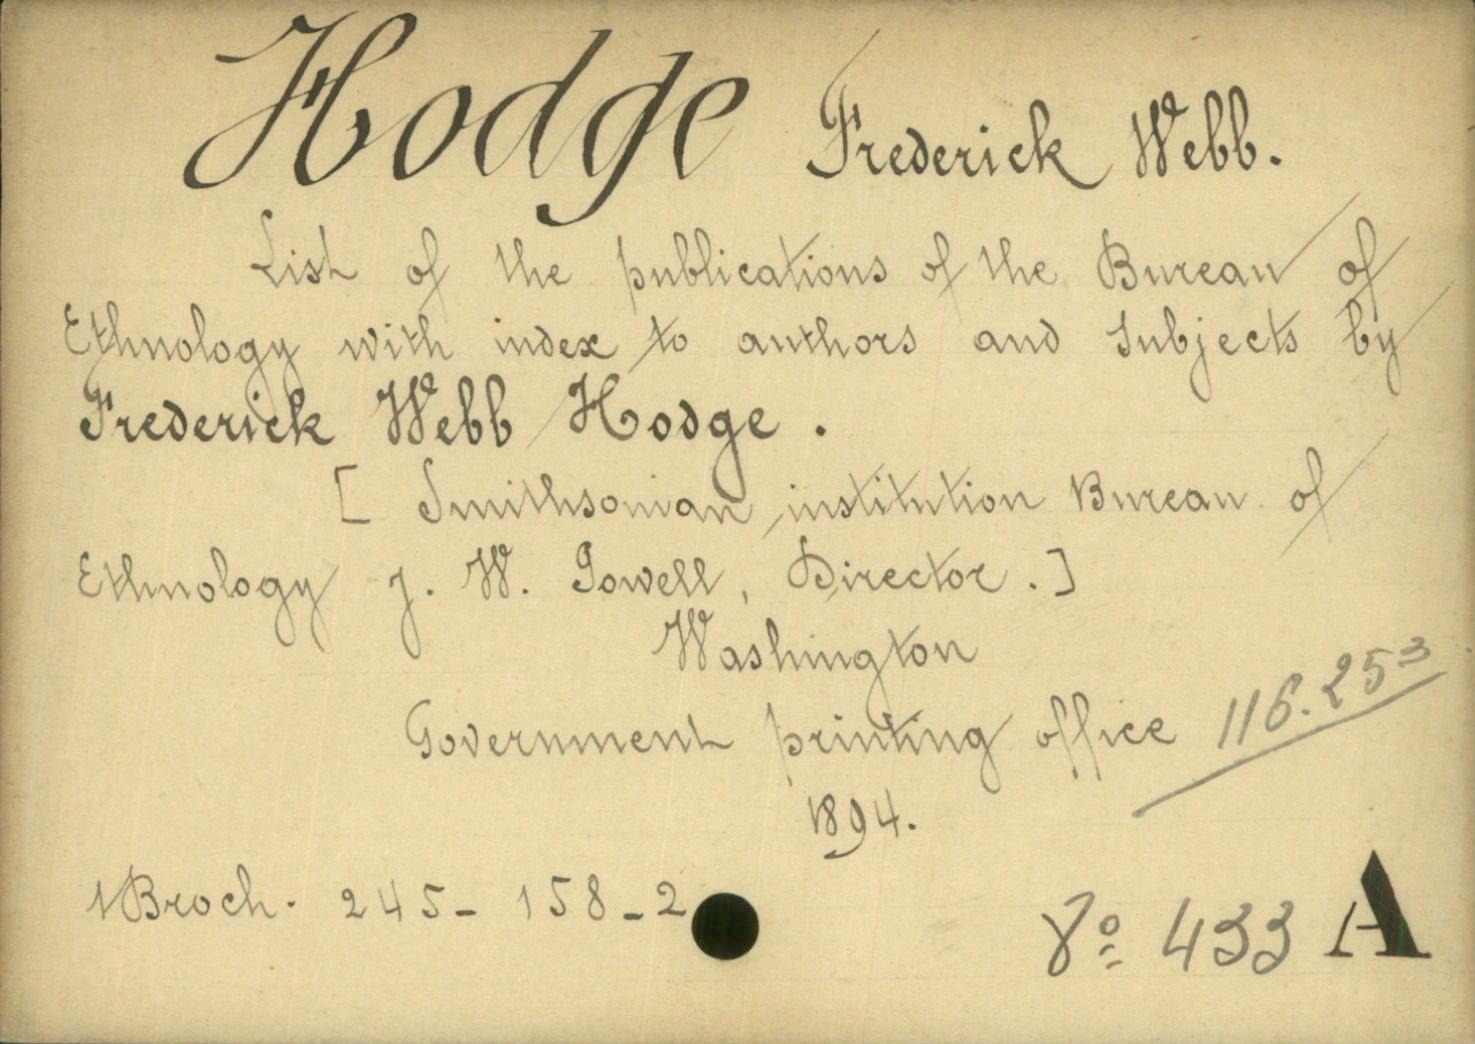 Hodge Frederick Webb.
List of the publications of the Bureau of
Ethnology with index to authors and Subjects by
Frederick Webb Hodge .
[ Smithsonian institution Bureau of
Ethnology J. W. Powell, Director . ]
Washington
Government printing office 116.25³
1894.
1 Broch. 245 - 158 - 2
8º 433 A